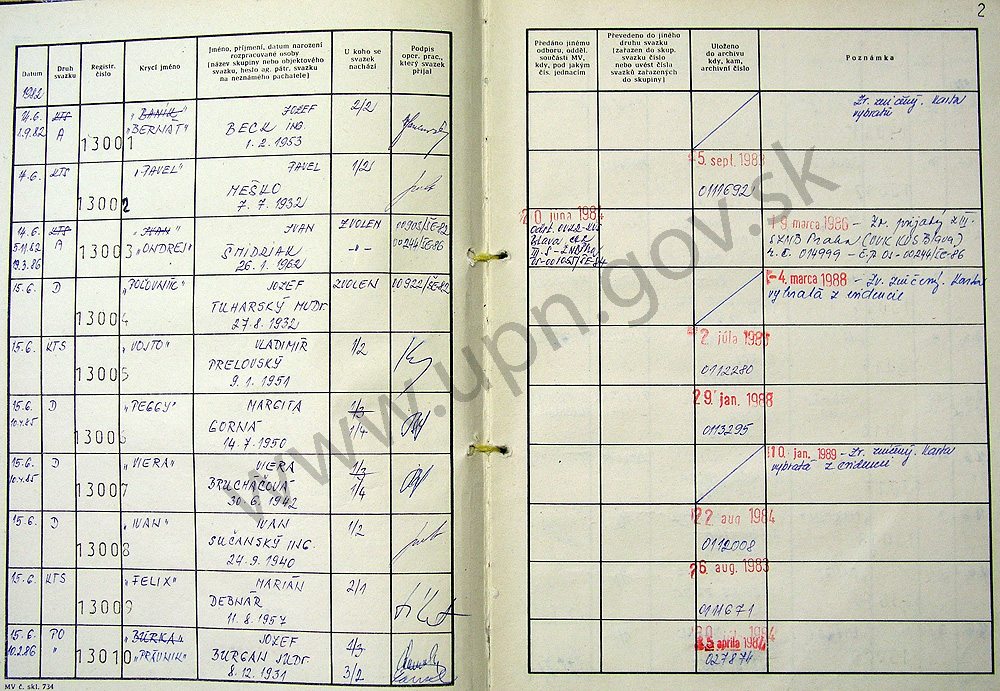 2
Datum
Druh svazku
Registr. číslo
Krycí jméno
Jméno, příjmení, datum narození
rozpracované osoby
(název skupiny nebo objektového
svazku, heslo ag. pátr. svazku
na neznámého pachatele)
U koho se
svazek
nachází
Podpis
oper. prac.,
který svazek
přijal
Předáno jinému
odboru, odděl.
součásti MV,
kdy, pod jakým
čís. jednacím
Převedeno do jiného
druhu svazku
(zařazen do skup.
svazku číslo
nebo uvést číslo
svazků zařazených
do skupiny)
Uloženo
do archivu
kdy, kam,
archivní číslo
Poznámka
1982
4.6. KTS "BANÍK" JOZEF 2/2
1.9.82 A 13001 "BERNAT" BECK ING.
1. 2. 1953
Zv. zničený. Karta
vybratá
4.6. KTS "PAVEL" PAVEL 1/2
13002 MEŠKO
7. 7. 1932
5. sept. 1983
0111692
4.6. KTS "IVAN" IVAN ZVOLEN 00905/ŠE-82
5.11.82 A 13003 "ONDREJ" ŠMIDRIAK -"- 00244/ČE-86
19.3.86 26. 1. 1962
0. júna 1984
9. marca 1986 - Zv. prijatý z III.
SZNB Praha (OVK KÚS Blava)
r.č. 014999 - č.p. OS-00244/ČE-86
15.6. D "POĽOVNÍK" JOZEF ZVOLEN 00922/ŠE-82
13004 TUHARSKÝ MUDr.
27. 8. 1932
-4. marca 1988 - Zv. zničený. Karta
vybratá z evidencie
15.6. KTS "VOJTO" VLADIMÍR 1/2
13005 PRELOVSKÝ
9. 1. 1951
2. júla
0112280
15.6. D "PEGGY" MARGITA 1/3
10.4.85 13006 GORNÁ 1/4
14. 7. 1950
29. jan. 1988
0113295
15.6. D "VIERA" VIERA 1/3
10.4.85 13007 BRUCHÁČOVÁ 1/4
30. 6. 1942
10. jan. 1989 - Zv. zničený. Karta
vybratá z evidencie
15.6. D "IVAN" IVAN 1/2
13008 SUČANSKÝ ING.
24. 9. 1940
22 aug 1984
0112008
15.6. KTS "FELIX" MARIÁN 2/1
13009 DEBNÁR
11. 8. 1957
26. aug. 1983
0111671
15.6. PO "BURKA" JOZEF 1/3
10.2.86 " 13010 "PRÁVNIK" BURGAN JUDr. 3/2
8. 12. 1931
apríla 1984
027874
MV č. skl. 734
www.upn.gov.sk